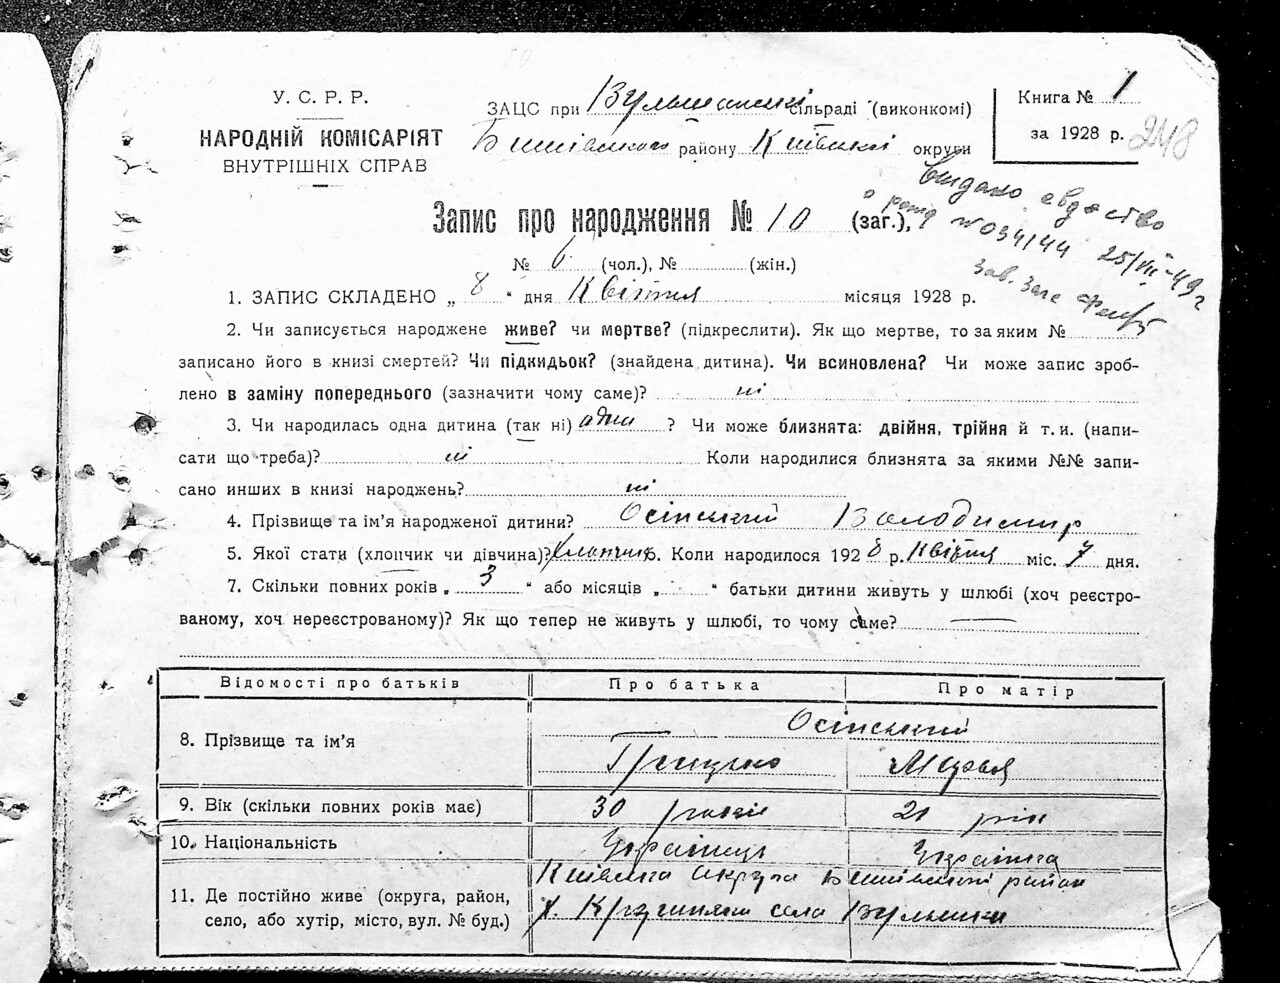 У. С. Р. Р.
НАРОДНІЙ КОМІСАРІЯТ
ВНУТРІШНІХ СПРАВ
ЗАЦС при Вульшанскій сільраді (виконкомі)
району Київської округи
Книга № 1
за 1928 р.
248
Видано свдоство
о рожд №034144 25/VII-49 г
Зав. Загс
Запис про народження № 10 (заг.),
№ 6 (чол.), № (жін.)
1. ЗАПИС СКЛАДЕНО „ 8 “ дня Квітня місяця 1928 р.
2. Чи записується народжене живе? чи мертве? (підкреслити). Як що мертве, то за яким №
записано його в книзі смертей? Чи підкидьок? (знайдена дитина). Чи всиновлена? Чи може запис зроб-
лено в заміну попереднього (зазначити чому саме)? ні
3. Чи народилась одна дитина (так ні) одна ? Чи може близнята: двійня, трійня й т. и. (напи-
сати що треба)? ні Коли народилися близнята за якими №№ запи-
сано инших в книзі народжень? ні
4. Прізвище та ім’я народженої дитини? Осінський Володимир
5. Якої стати (хлопчик чи дівчина)? Хлопчик. Коли народилося 1928 р. Квітня міс. 7 дня.
7. Скільки повних років „ 3 “ або місяців „ “ батьки дитини живуть у шлюбі (хоч реєстро-
ваному, хоч нереєстрованому)? Як що тепер не живуть у шлюбі, то чому саме? —
Відомості про батьків Про батька Про матір
Осінський
8. Прізвище та ім’я Грицько Марья
9. Вік (скільки повних років має) 30 років 21 рік
10. Національність Українець Українка
Київська округа район
11. Де постійно живе (округа, район,
село, або хутір, місто, вул. № буд.) х. села Вульшки